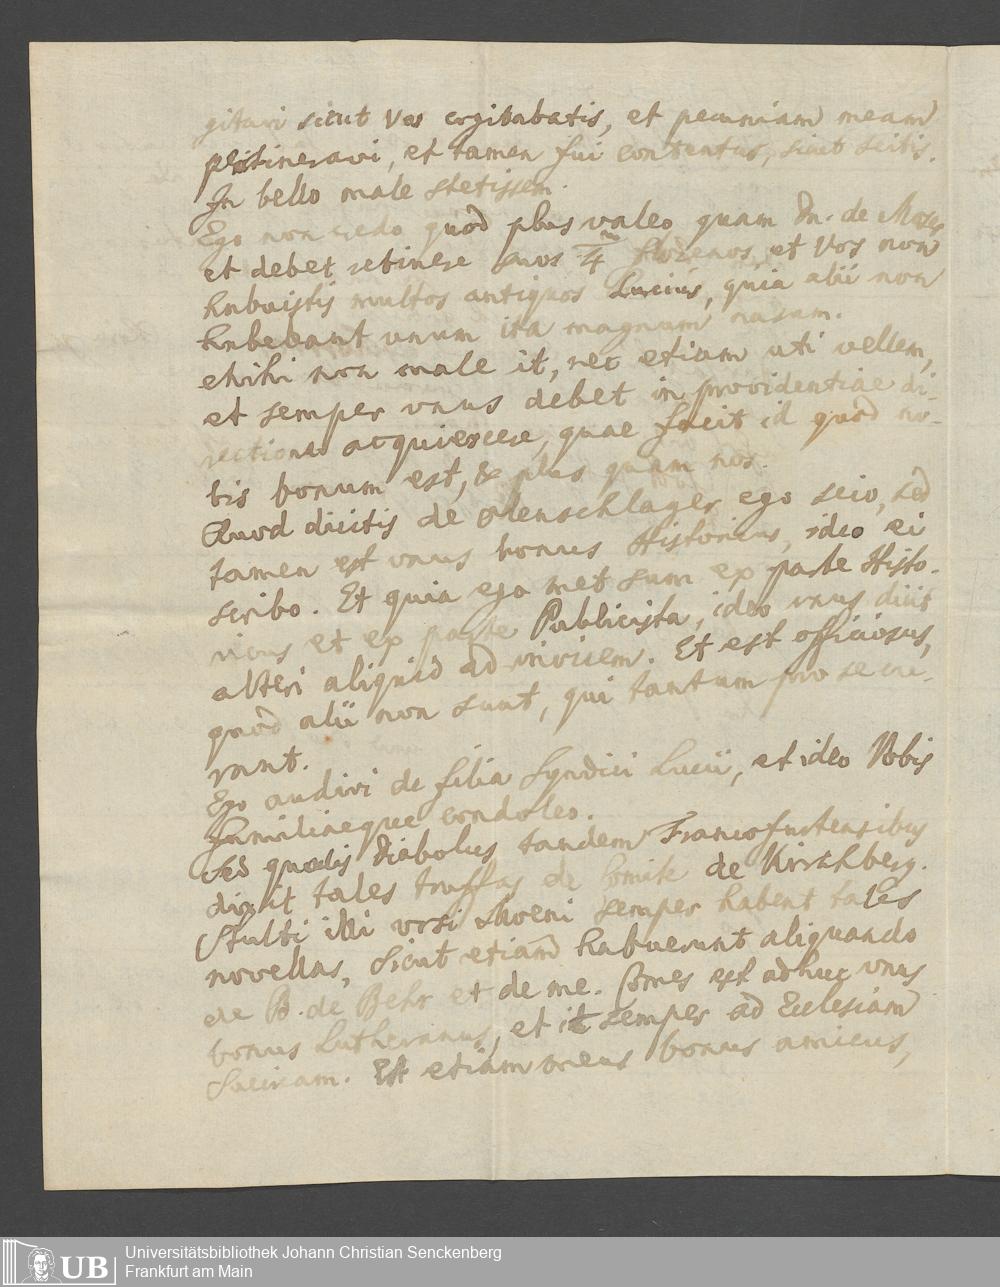 gitari sicut Vos cogitabatis, et pecuniam meam
et tamen fui contentus, sicut scitis.
In bello male stetissem.
Ego non credo quod plus valeo quam Dn. de
et debet retinere suos florenos, et Vos non
habuistis multos antiquos Lucius, quia alii non
habebant unum ita magnum nasum.
Mihi non male it, nec etiam uti vellem,
et semper unus debet in providentiae di-
rectione acquiescere, quae facit id quod no-
bis bonum est, & plus quam nos.
Quod dicitis de Olenschlager ego scio, sed
tamen est unus bonus Historicus, ideo ei
scribo. Et quia egomet sum ex parte Histo-
ricus et ex parte Publicista, ideo unus dicit
alteri aliquid ad invicem. Et est officiosus,
quod alii non sunt, qui tantum pro se cu-
rant.
Ego audivi de filia Syndici Lucii, et ideo Vobis
familiaeque condoleo.
Sed qualis diabolus tandem Francofurtensibus
dixit tales truffas de Comite de Kirchberg.
Stulti illi ursi semper habent tales
novellas, sicut etiam habuerunt aliquando
de B. de Behr et de me. Comes est adhuc unus
bonus Lutheranus, et it semper ad Ecclesiam
suam. Est etiam meus bonus amicus,
UB
Universitätsbibliothek Johann Christian Senckenberg
Frankfurt am Main